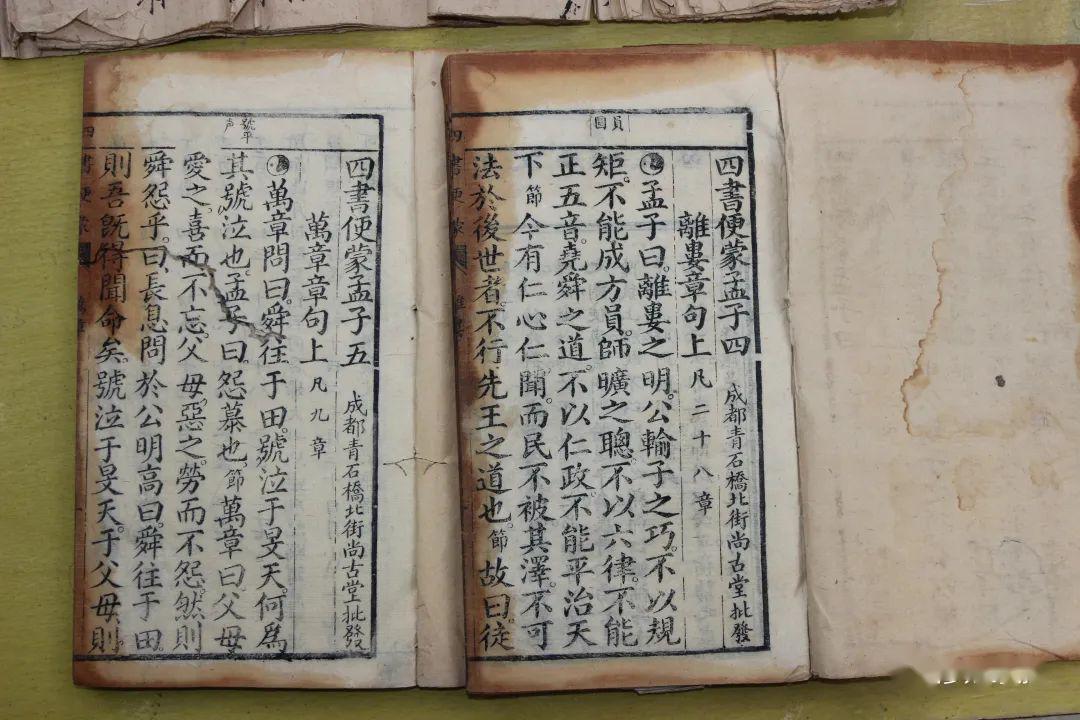 員
四書便蒙孟子四 成都青石橋北街尚古堂批發
離婁章句上 凡二十八章
孟子曰。離婁之明。公輸子之巧。不以規
矩。不能成方員。師曠之聰。不以六律。不能
正五音。堯舜之道。不以仁政。不能平治天
下節今有仁心仁聞。而民不被其澤。不可
法於後世者。不行先王之道也。節故曰。徒
四書便蒙
號平声
四書便蒙孟子五 成都青石橋北街尚古堂批發
萬章章句上 凡九章
萬章問曰。舜往于田。號泣于旻天。何為
其號泣也。孟子曰。怨慕也。節萬章曰。父母
愛之喜而不忘。父母惡之。勞而不怨。然則
舜怨乎。曰。長息問於公明高曰。舜往于田。
則吾既得聞命矣。號泣于旻天。于父母。則
四書便蒙